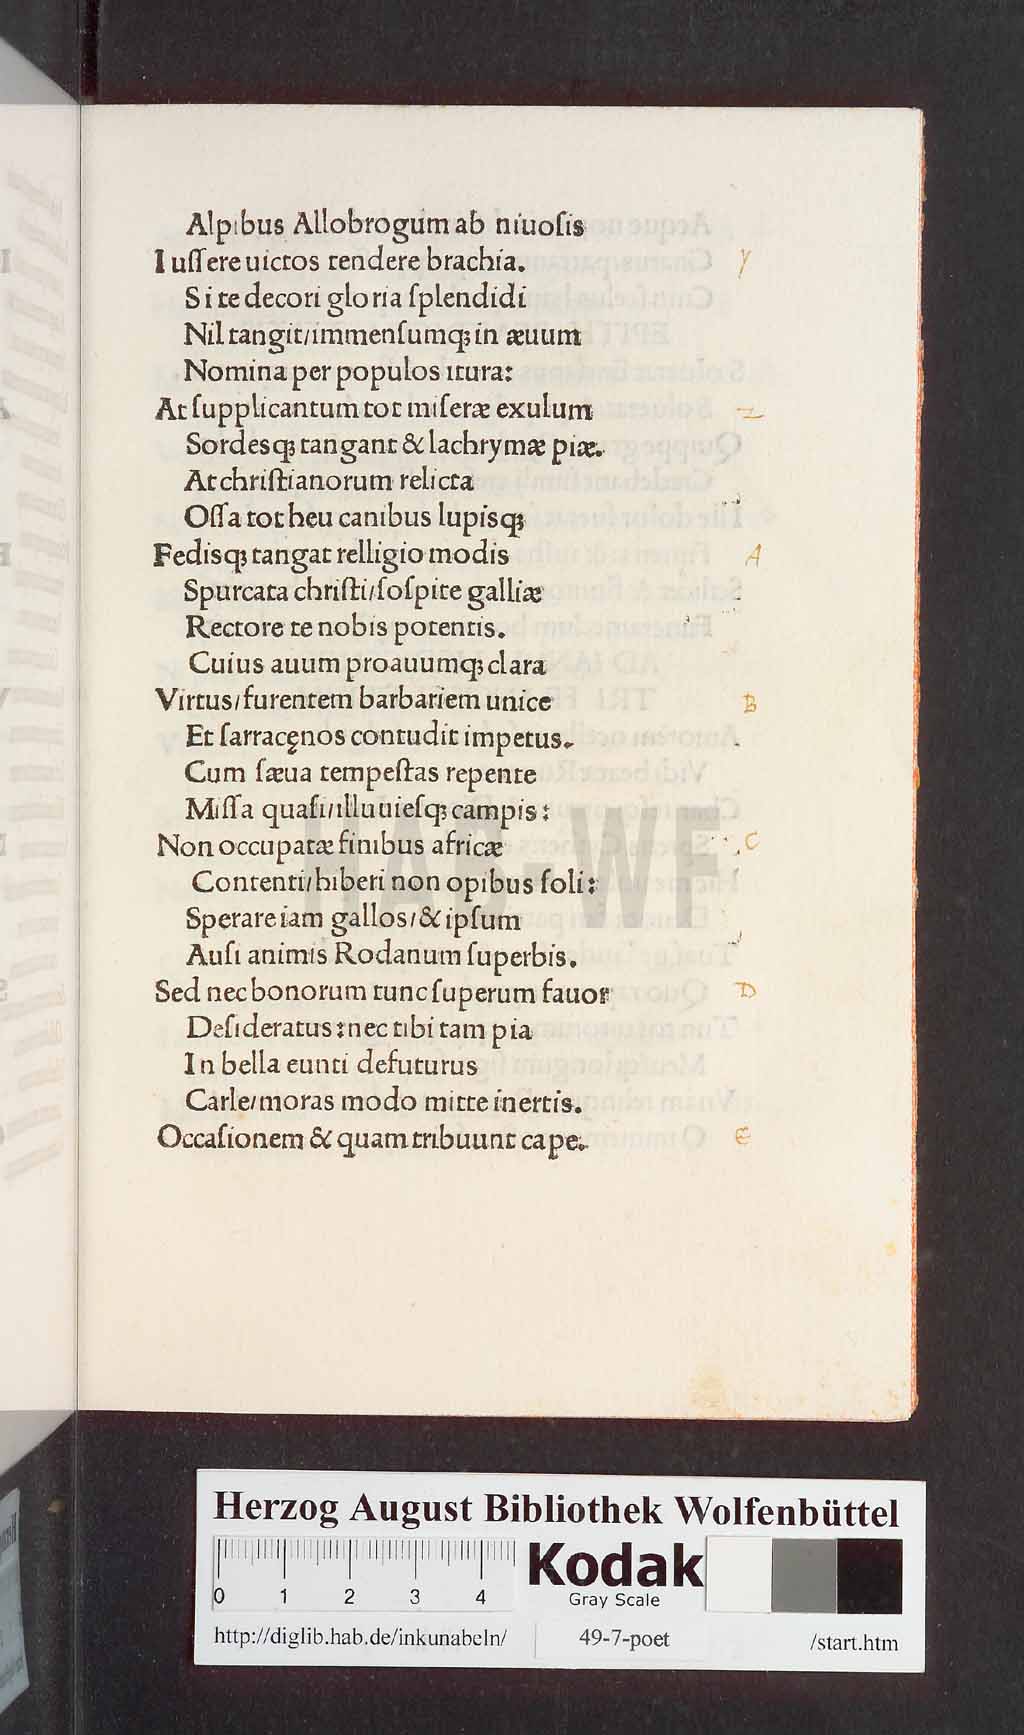 Alpibus Allobrogum ab niuoſis
Iuſſere uictos tendere brachia. y
Si te decori gloria ſplendidi
Nil tangit/immenſumqꝫ in æuum
Nomina per populos itura:
At ſupplicantum tot miſeræ exulum z
Sordesqꝫ tangant & lachrymæ piæ.
At chriſtianorum relicta
Oſſa tot heu canibus lupisqꝫ
Fedisqꝫ tangat relligio modis A
Spurcata chriſti/ſoſpite galliæ
Rectore te nobis potentis.
Cuius auum proauumqꝫ clara
Virtus/furentem barbariem unice B
Et ſarracęnos contudit impetus.
Cum ſæua tempeſtas repente
Miſſa quaſi/illuuieſqꝫ campis:
Non occupatæ finibus africæ C
Contenti/hiberi non opibus ſoli:
Sperare iam gallos/& ipſum
Auſi animis Rodanum ſuperbis.
Sed nec bonorum tunc ſuperum fauor D
Deſideratus: nec tibi tam pia
In bella eunti defuturus
Carle/moras modo mitte inertis.
Occaſionem & quam tribuunt cape. E
HAB-WF
Herzog August Bibliothek Wolfenbüttel
0 1 2 3 4
Kodak
Gray Scale
http://diglib.hab.de/inkunabeln/ 49-7-poet /start.htm